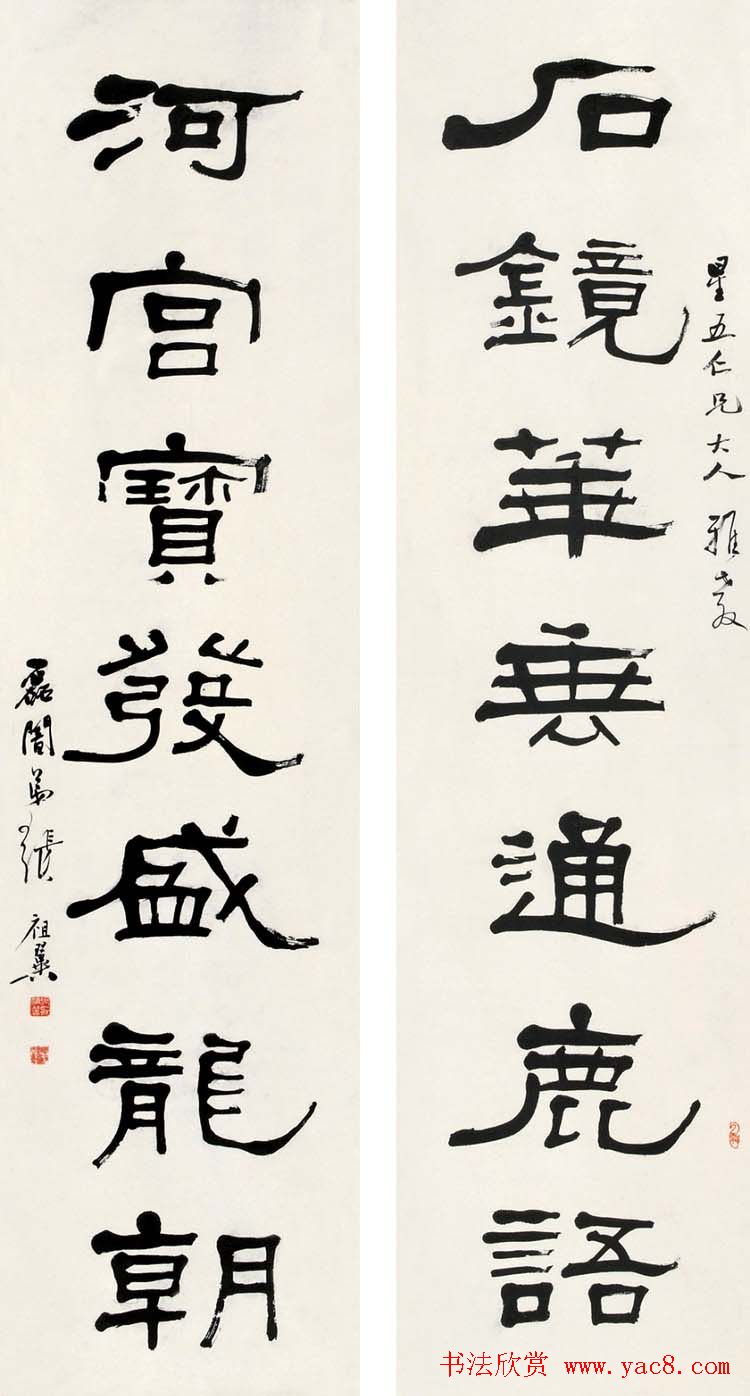 星五仁兄大人雅教
石鏡華垂通鹿語
河宮寶發盛龍朝
磊闇弟張祖翼
书法欣赏 www.yac8.com